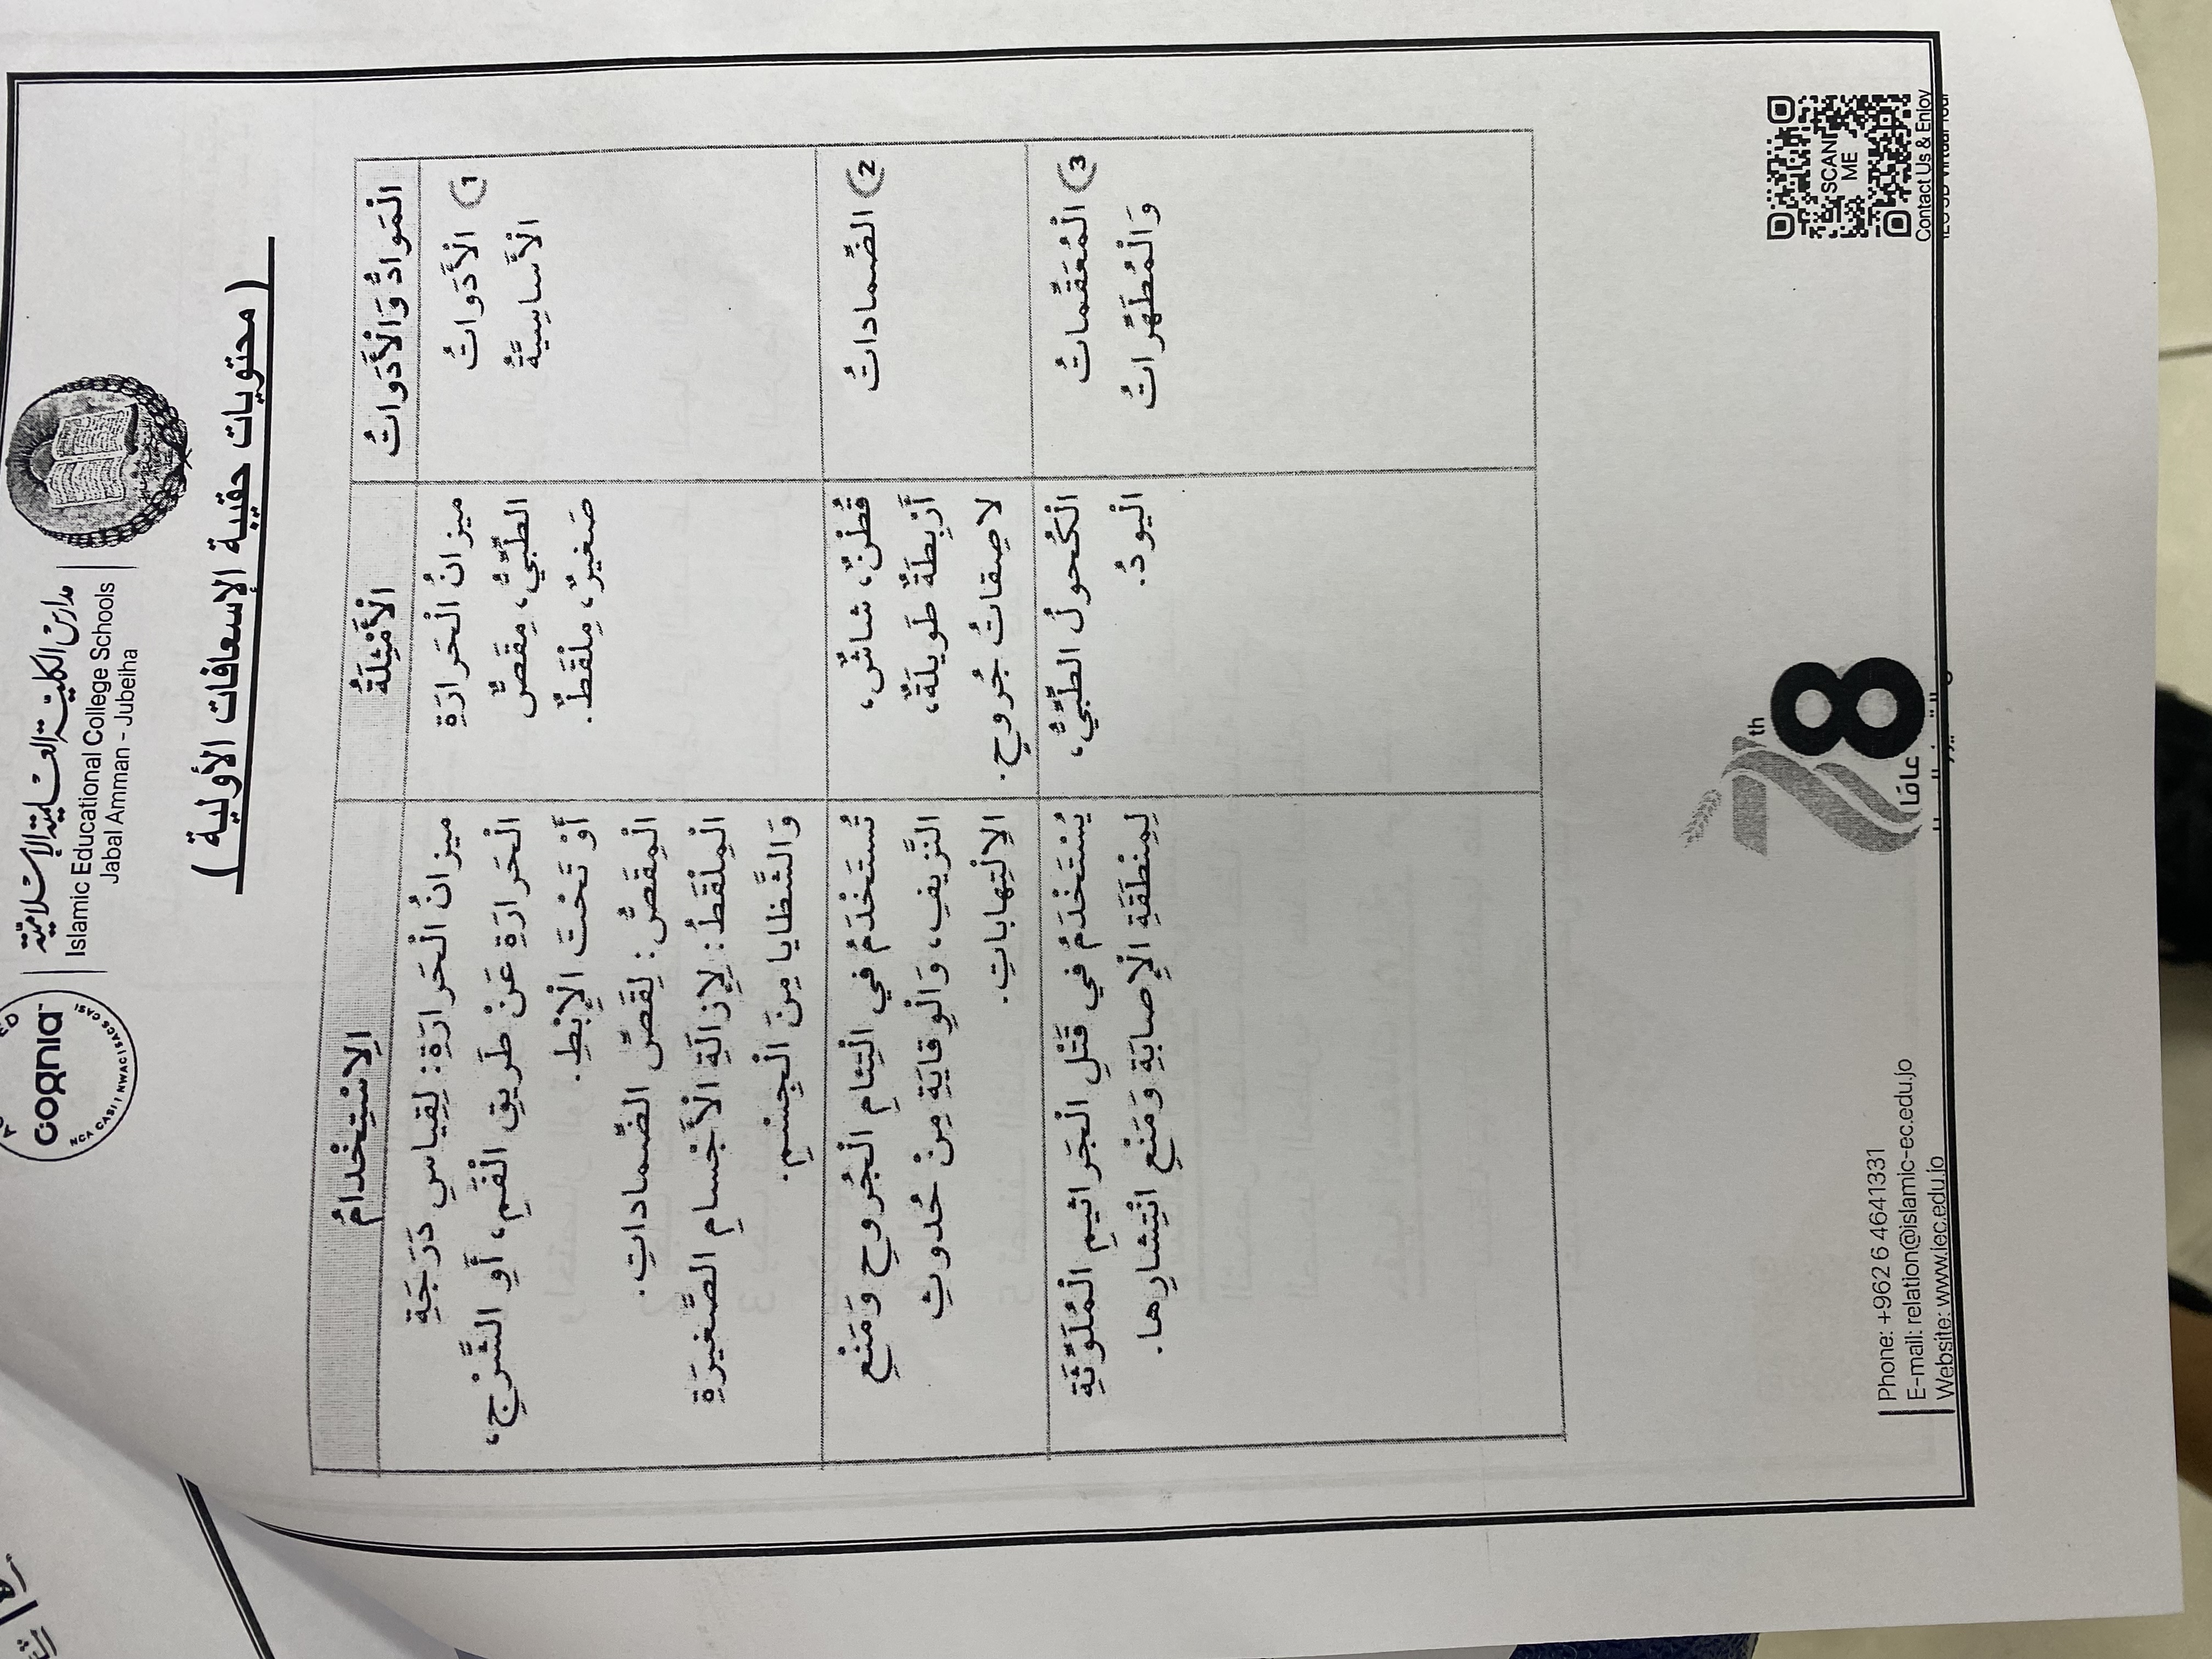 cognia
NCA CASI | NWAC | SACS CASI
مدارس الكلية العلمية الإسلامية
Islamic Educational College Schools
Jabal Amman - Jubeiha
( محتويات حقيبة الإسعافات الأولية )
الْمَوادُّ وَالْأَدَواتُ
الْأَمْثِلَةُ
الِاسْتِخْدامُ
1) الْأَدَواتُ
الْأَساسِيَّةُ
ميزانُ الْحَرارَةِ
الطِّبِّيُّ، مِقَصٌّ
صَغيرٌ، مِلْقَطٌ.
ميزانُ الْحَرارَةِ: لِقِياسِ دَرَجَةِ
الْحَرارَةِ عَنْ طَريقِ الْفَمِ، أَوِ الشَّرْجِ،
أَوْ تَحْتَ الْإِبْطِ.
الْمِقَصُّ: لِقَصِّ الضِّماداتِ.
الْمِلْقَطُ: لِإِزالَةِ الْأَجْسامِ الصَّغيرَةِ
وَالشَّظايا مِنَ الْجِسْمِ.
2) الضِّماداتُ
قُطْنٌ، شاشٌ،
أَرْبِطَةٌ طَويلَةٌ،
لاصِقاتُ جُروحٍ.
تُسْتَخْدَمُ في الْتِئامِ الْجُروحِ وَمَنْعِ
النَّزيفِ، وَالْوِقايَةِ مِنْ حُدوثِ
الِالْتِهاباتِ.
3) الْمُعَقِّماتُ
وَالْمُطَهِّراتُ
الْكُحولُ الطِّبِّيُّ،
الْيودُ.
يُسْتَخْدَمُ في قَتْلِ الْجَراثيمِ الْمُلَوِّثَةِ
لِمِنْطَقَةِ الْإِصابَةِ وَمَنْعِ انْتِشارِها.
Phone: +962 6 4641331
E-mail: relation@islamic-ec.edu.jo
Website: www.iec.edu.jo
78th
عاما
SCAN
ME
Contact Us & Enjoy